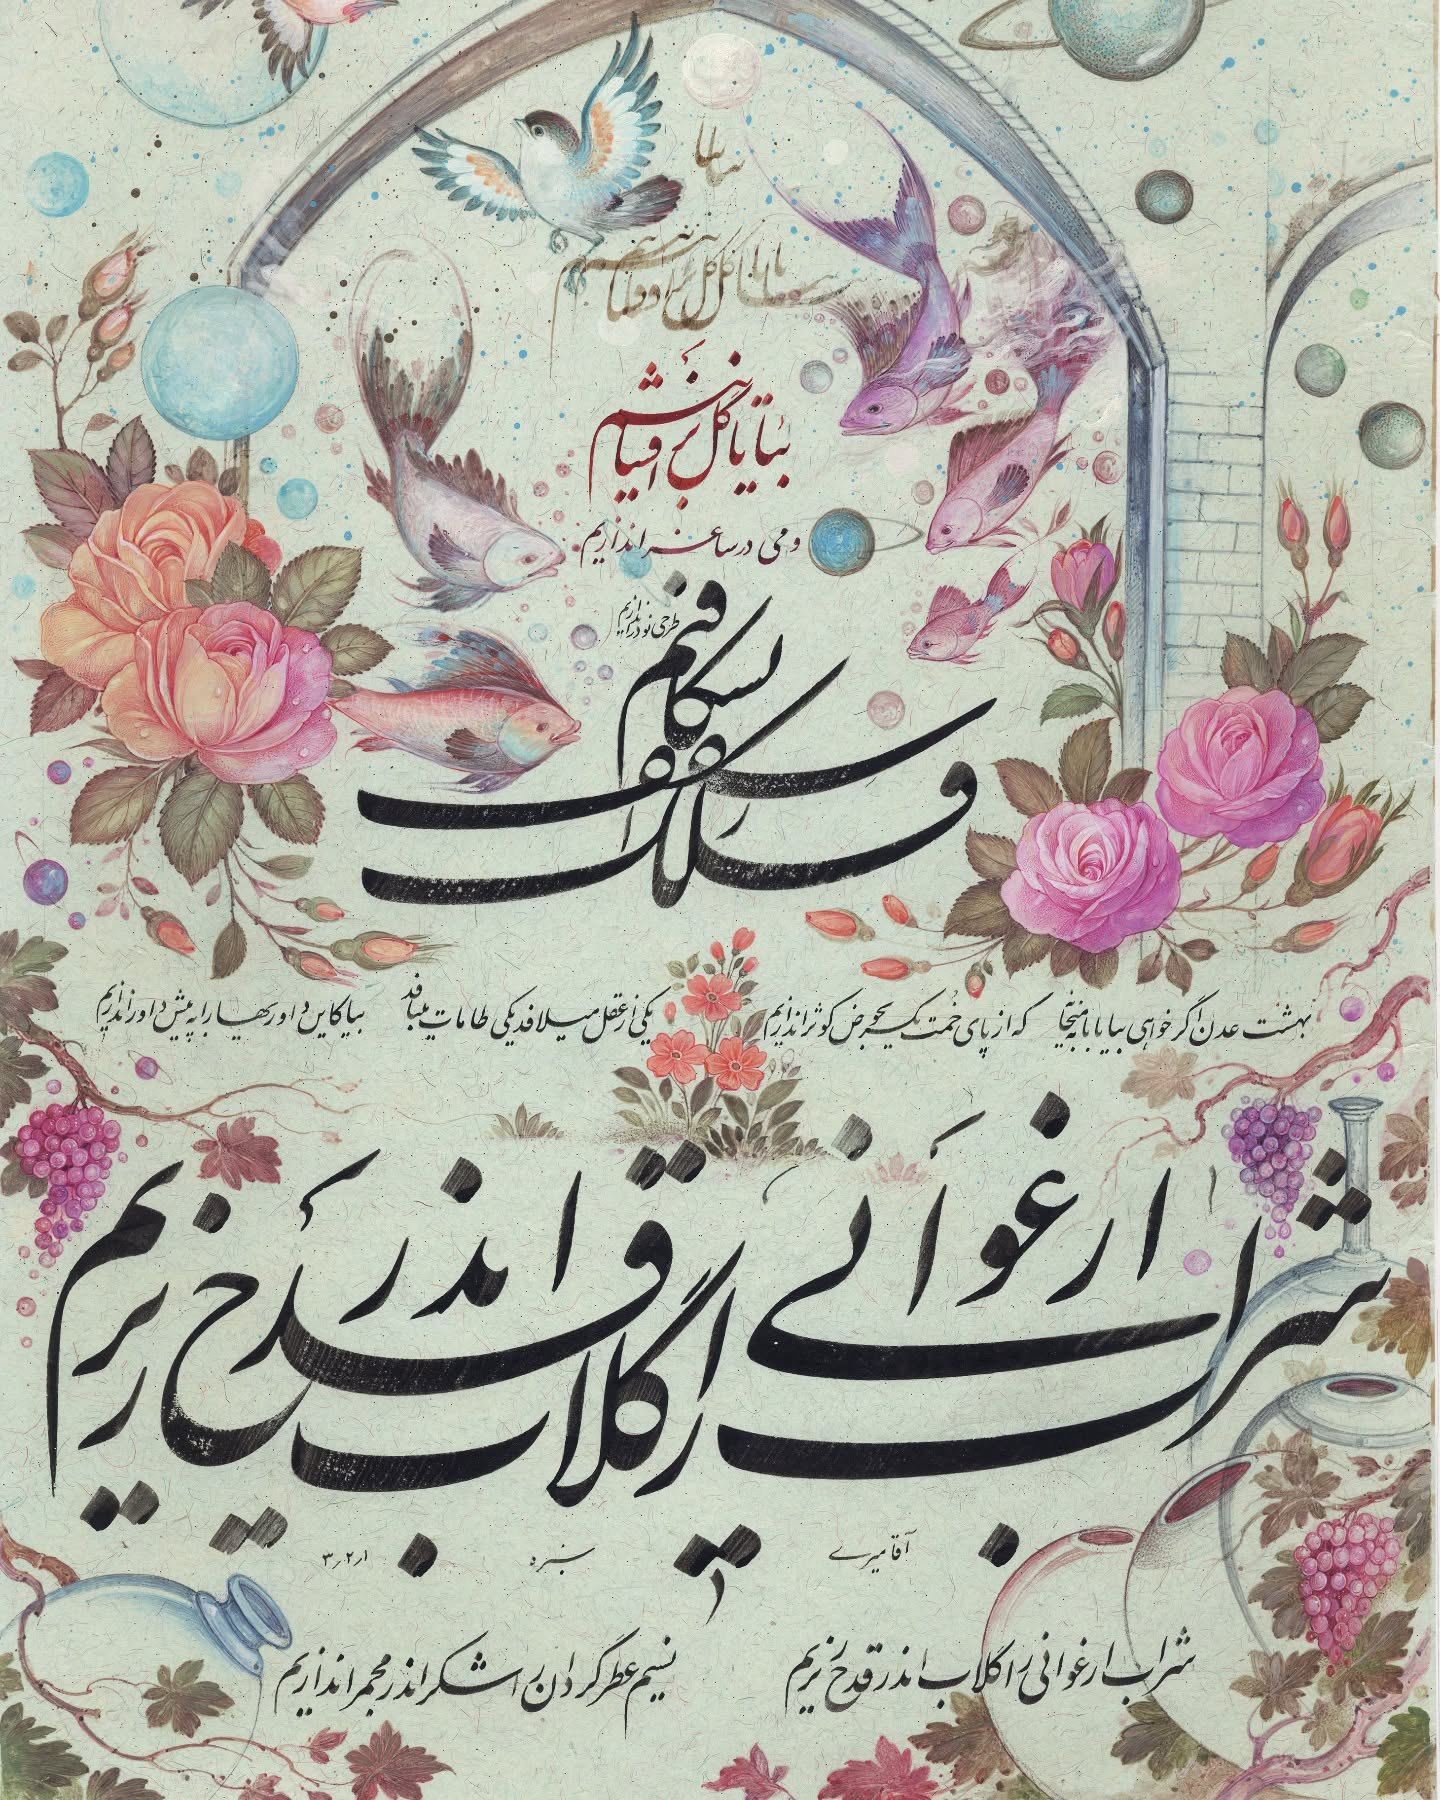 بیا
بیا تا گل برافشانیم
بیا تا گل برافشانیم
و می در ساغر اندازیم
طرحی نو دراندازیم
فلک را سقف بشکافیم
بهشت عدن اگر خواهی بیا با ما به میخانه که از پای خمت یکسر به حوض کوثر اندازیم
یکی از عقل میلافد یکی طامات میبافد بیا کاین داوریها را به پیش داور اندازیم
شراب ارغوانی را گلاب اندر قدح ریزیم
آقامیری
شراب ارغوانی را گلاب اندر قدح ریزیم نسیم عطرگردان را شکر اندر مجمر اندازیم